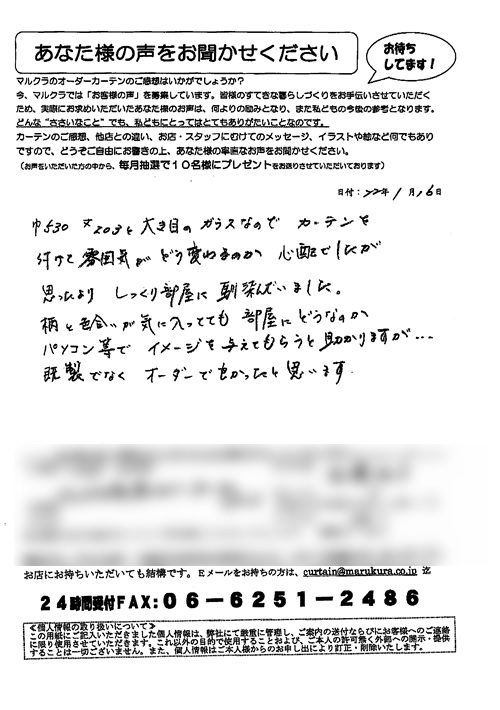 あなた様の声をお聞かせください
お待ち
してます!
マルクラのオーダーカーテンのご感想はいかがでしょうか?
今、マルクラでは「お客様の声」を募集しています。皆様のすてきな暮らしづくりをお手伝いさせていただく
ため、実際にお求めいただいたあなた様のお声は、何よりの励みとなり、また私どもの今後の参考となります。
どんな“ささいなこと”でも、私どもにとってはとてもありがたいことなのです。
カーテンのご感想、他店との違い、お店・スタッフにむけてのメッセージ、イラストや絵など何でもあり
ですので、どうぞご自由にお書きの上、あなた様の率直なお声をお聞かせください。
(お声をいただいた方の中から、毎月抽選で10名様にプレゼントをお送りさせていただいております)
日付:22年1月16日
巾530 丈203と大き目のガラスなので カーテンを
付けて雰囲気がどう変わるのか 心配でしたが
思ったより しっくり部屋に馴染んでいました。
柄と色合いが気に入ってても 部屋にどうなのか
パソコン等で イメージを与えてもらうと助かりますが…
既製でなく オーダーでよかったと思います.
お店にお持ちいただいても結構です。Eメールをお持ちの方は、curtain@marukura.co.jp 迄
24時間受付FAX:06-6251-2486
≪個人情報の取り扱いについて≫
この用紙にご記入いただきました個人情報は、弊社にて厳重に管理し、ご案内の送付ならびにお客様へのご連絡
に限り使用させていただきます。これ以外の目的で使用することおよび、ご本人の許可無く外部への開示・提供
することは一切ございません。また、個人情報はご本人様からのお申し出により訂正・削除いたします。